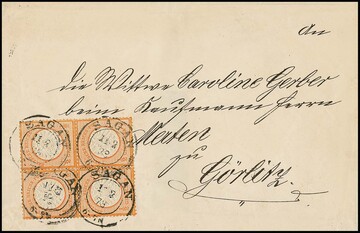 An
die Wittwe Caroline Gerber
beim Kaufmann Herrn
Merten
zu
Görlitz.
SAGAN
SAGAN
SAGAN
SAGAN